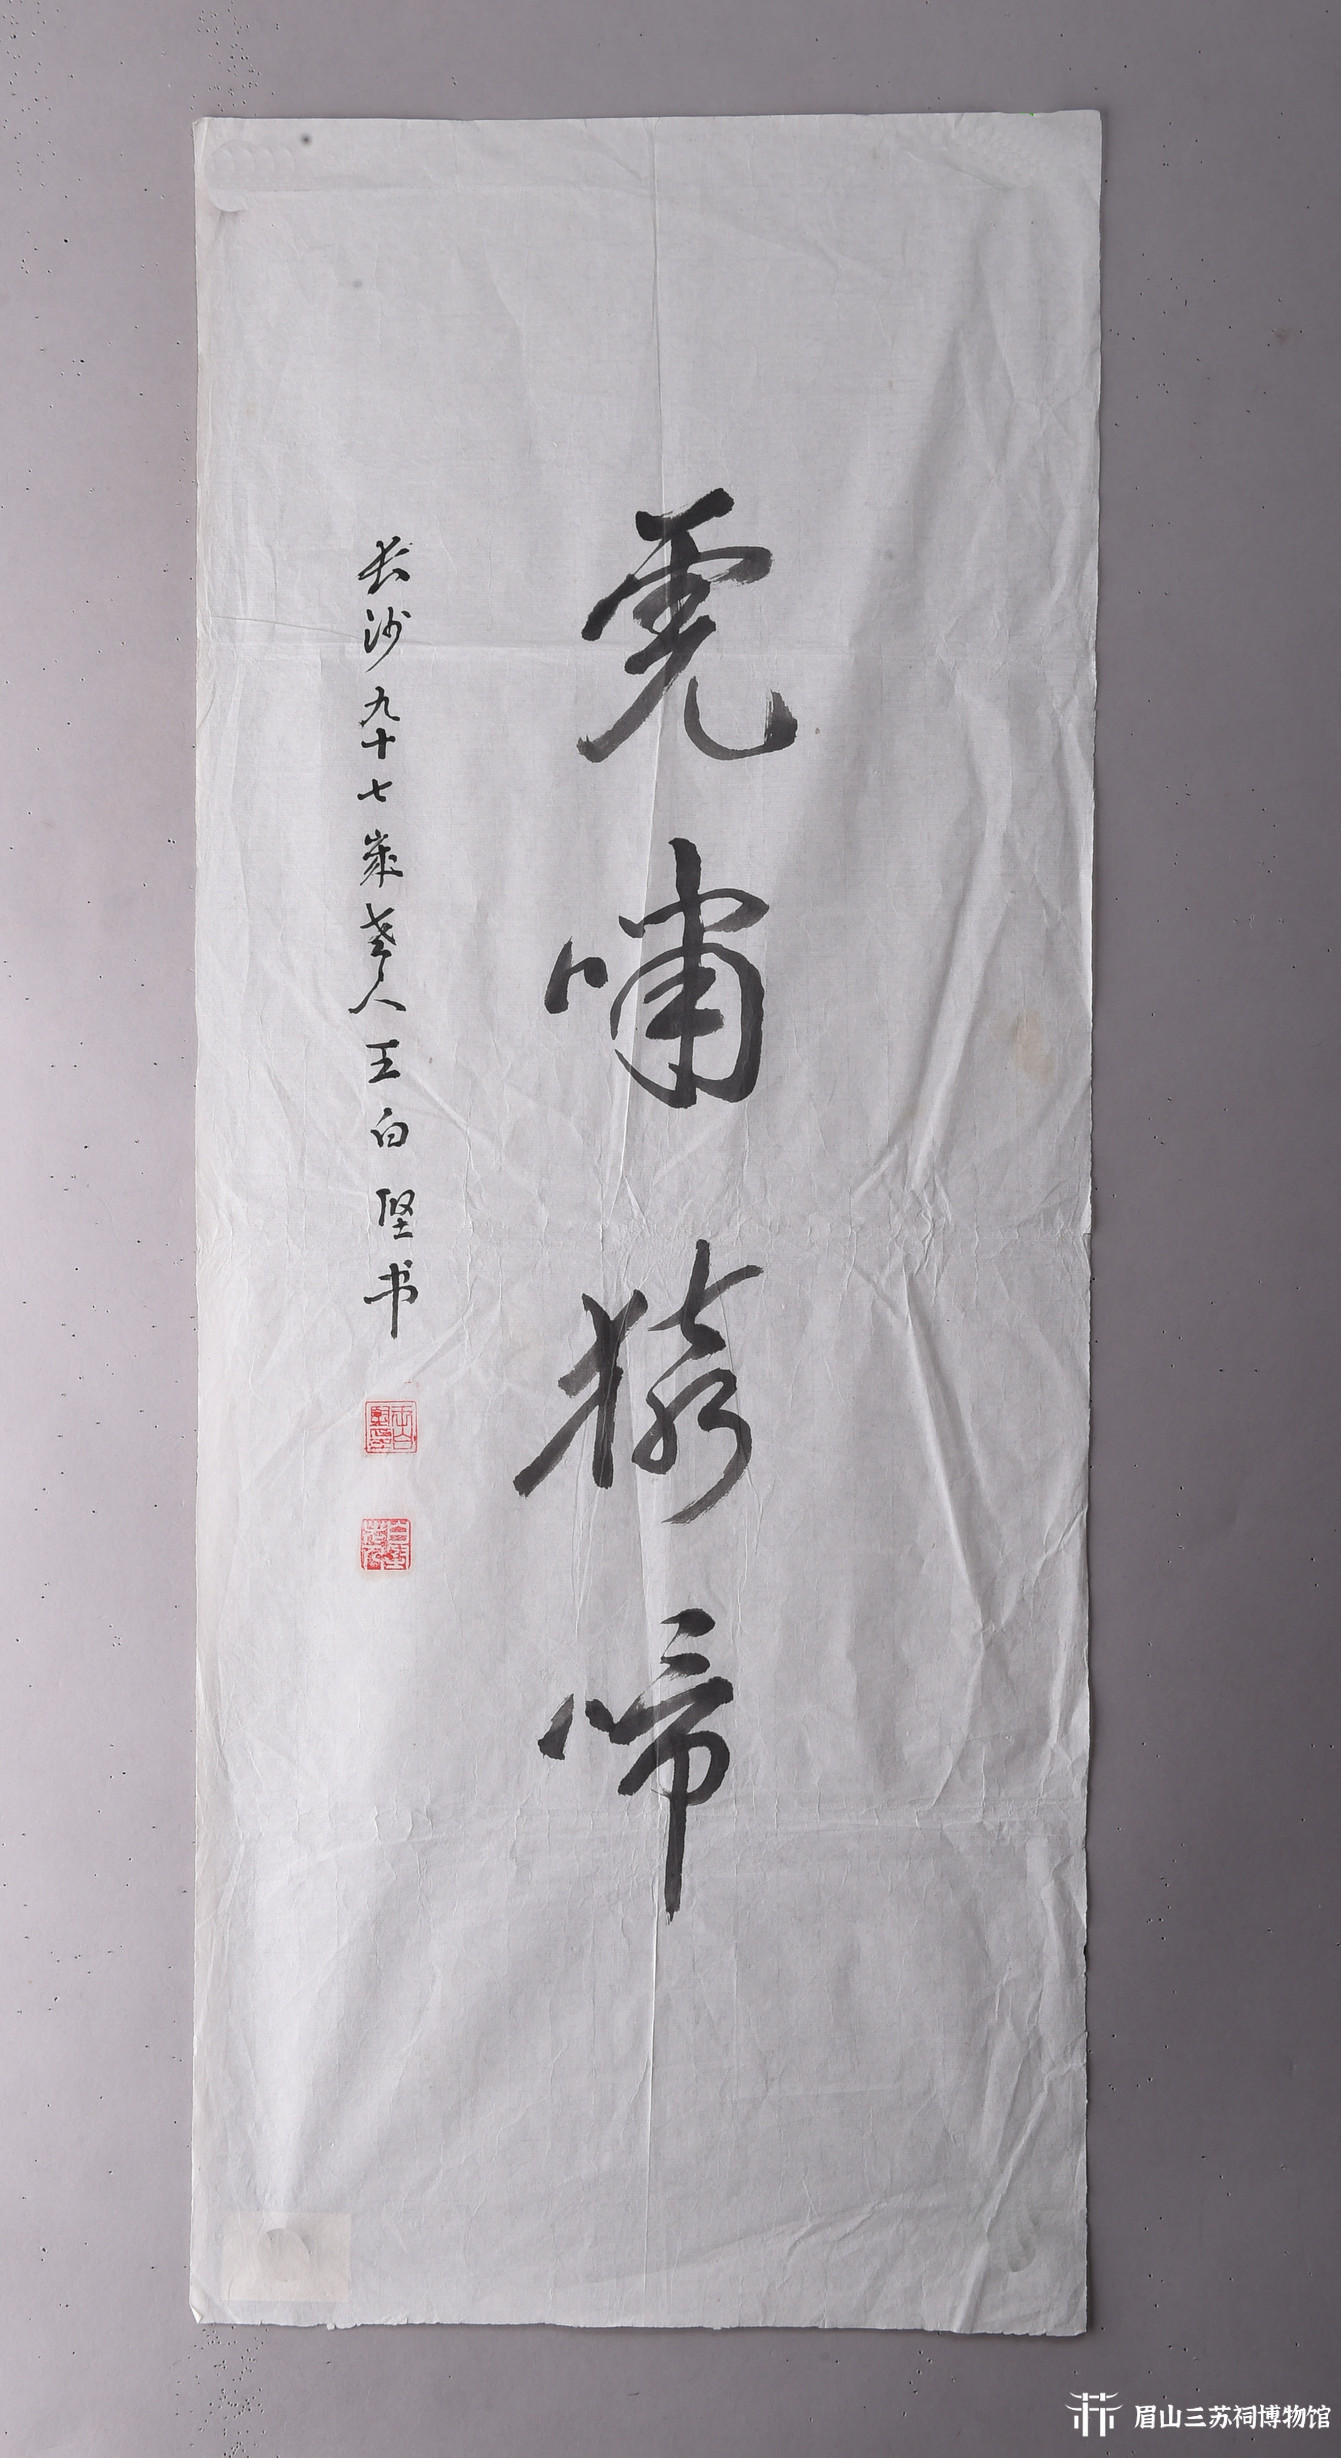 虎啸猿啼
长沙九十七岁老人王白坚书
眉山三苏祠博物馆